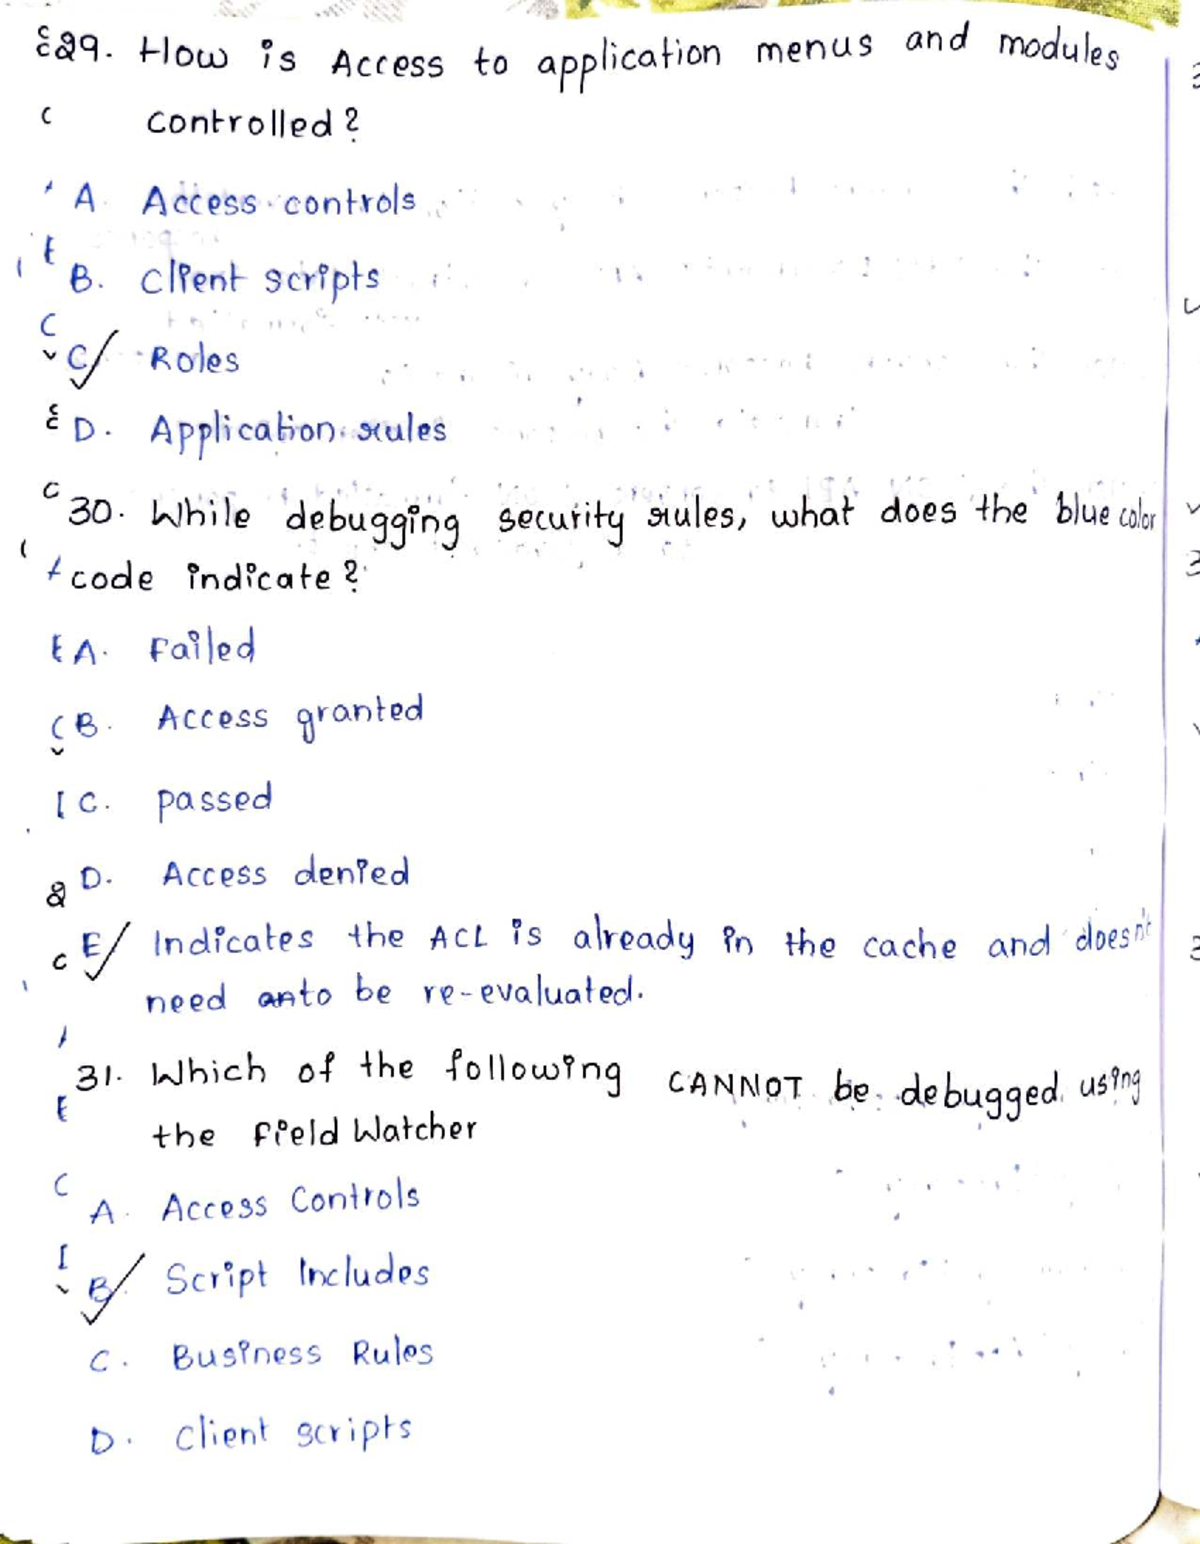 29. How is Access to application menus and modules
controlled?
A. Access controls
B. Client scripts
C. Roles
D. Application rules
30. While debugging security rules, what does the blue color
code indicate?
A. Failed
B. Access granted
C. passed
D. Access denied
E. Indicates the ACL is already in the cache and doesn't
need to be re-evaluated.
31. Which of the following CANNOT be debugged using
the Field Watcher
A. Access Controls
B. Script Includes
C. Business Rules
D. Client scripts